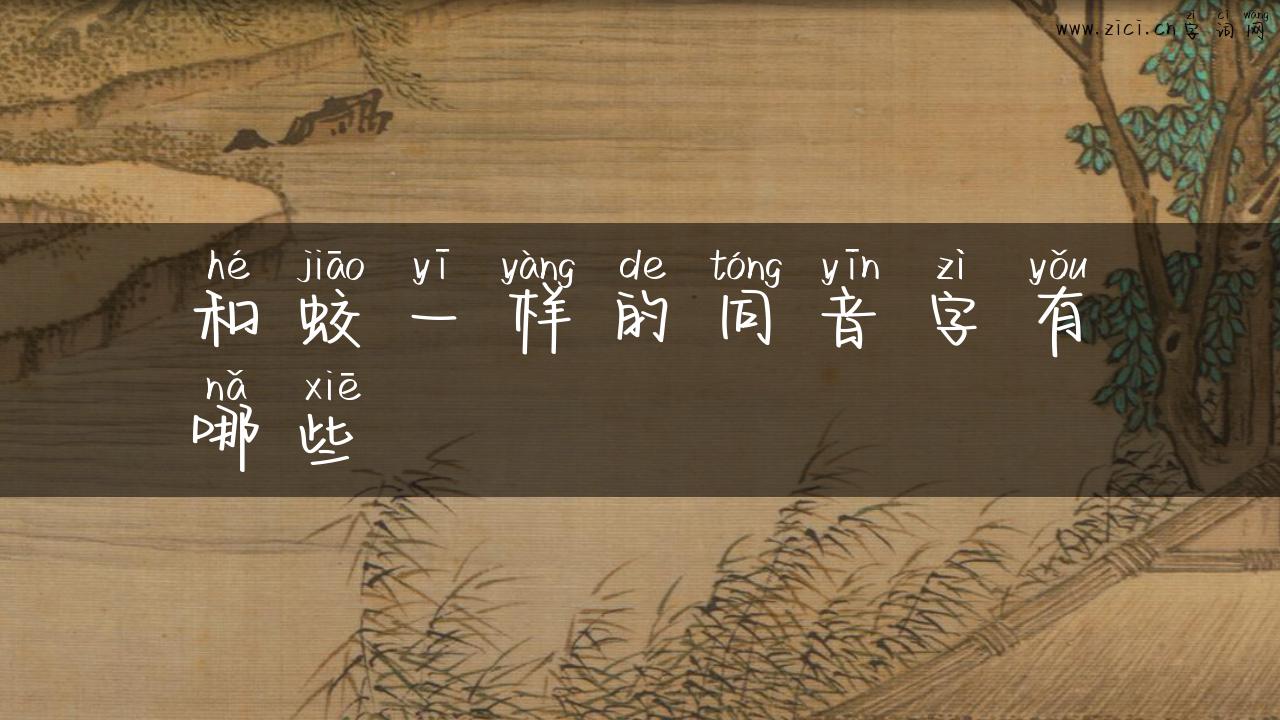 zì cí wǎng
www.zici.cn字词网
hé jiāo yī yàng de tóng yīn zì yǒu
和蛟一样的同音字有
nǎ xiē
哪些